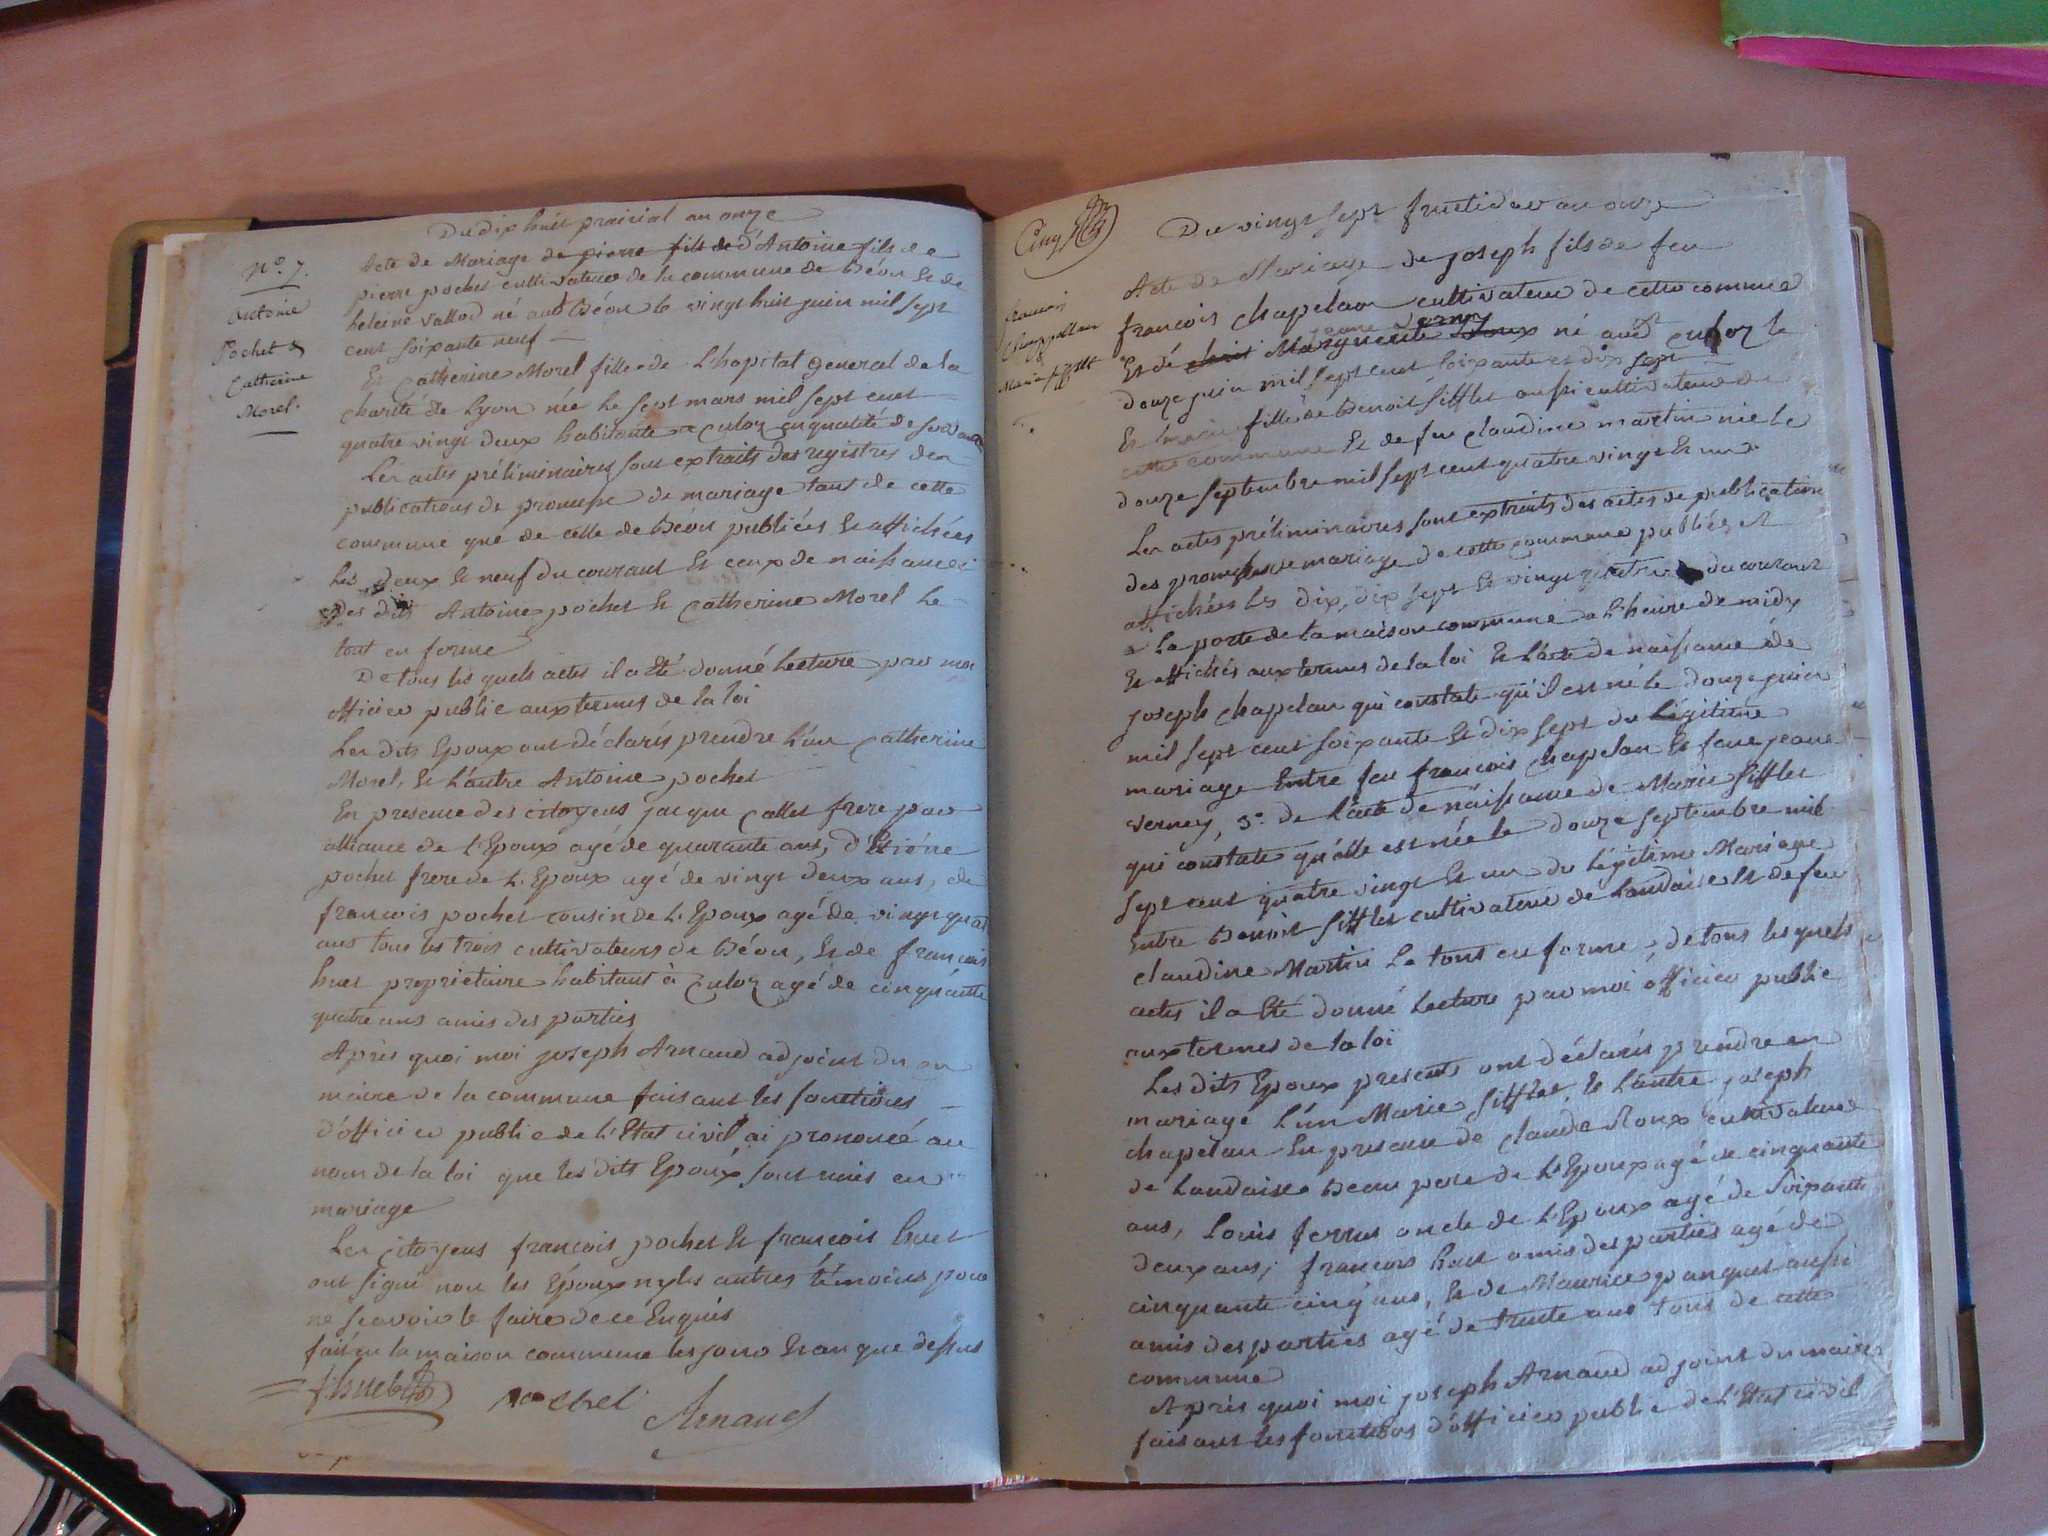 Du dix huit prairial an onze
N° 7.
Antoine
Pochet &
Catherine
Morel.
Acte de Mariage de pierre fils de d'Antoine fils de
pierre pochet cultivateur de la commune de Béon Et de
heleine vallod né aud Béon le vingt huit juin mil sept
cent soixante neuf
Et Catherine Morel fille de L'hopital general de la
charité de Lyon née le sept mars mil sept cent
quatre vingt deux habitante a Culoz en qualité de servante
Les actes préliminaires sont extraits des registres de
publications de promesse de mariage tant de cette
commune que de celle de Béon publiées Et affichées
les deux Et neuf du courant Et ceux de naissances
des dits Antoine pochet Et Catherine Morel le
tout en forme
De tous les quels actes il a Eté donné Lecture par moi
officier public aux termes de la loi
Les dits Epoux ont déclarés prendre L'un Catherine
Morel, Et L'autre Antoine pochet
En presence des citoyens jacque Callet frere par
alliance de L'Epoux agé de quarante ans, d'Etiéne
pochet frere de L'Epoux agé de vingt deux ans, de
francois pochet cousin de L'Epoux agé de vingt quatre
ans tous les trois cultivateurs de Béon, Et de francois
huet propriétaire habitant à Culoz agé de cinquante
quatre ans amis des parties
Après quoi moi joseph Arnaud adjoint du
maire de la commune faisant les fonctions
d'officier public de L'Etat civil ai prononcé au
nom de la loi que les dits Epoux sont unis en
mariage
Les citoyens francois pochet Et francois huet
ont signé non les Epoux ny les autres témoins pour
ne scavoir le faire de ce Enquis
fait en la maison commune les jour Et an que dessus
fhuet pochet Arnaud
Cinq
Du vingt sept fructidor an onze
francois
Chappellan
Marie sifflet
Acte de Mariage de joseph fils de feu
francois chapelan cultivateur de cette commune
Et de Marguerite Roux jeane Verney né aud Culoz le
douze juin mil sept cent soixante et dix sept
Et Marie fille de Benoit sifflet aussi cultivateur de
cette commune Et de feu claudine martin née le
douze septembre mil sept cent quatre vingt Et un
Les actes préliminaires sont extraits des actes de publication
des promesses de mariage de cette commune publiés et
affichées les dix, dix sept Et vingt quatre du courant
a La porte de la maison commune a L'heure de midy
Et affichés aux termes de la loi Et L'acte de naissance de
joseph chapelan qui constate qu'il est né le douze juin
mil sept cent soixante Et dix sept du Légitime
mariage Entre feu francois chapelan Et feue jeane
verney, 3° de L'acte de naissance de Marie sifflet
qui constate qu'elle est née le douze septembre mil
sept cent quatre vingt Et un du Légitime Mariage
Entre Benoit sifflet cultivateur de Landaise Et de feu
claudine Martin Le tout en forme, de tous les quels
actes il a Eté donné Lecture par moi officier public
aux termes de la loi
Les dits Epoux presents ont déclarés prendre en
mariage L'un Marie sifflet, Et L'autre joseph
chapelan En presence de claude Roux cultivateur
de Landaise Beau pere de L'Epoux agé de cinquante
ans, Louis ferrus oncle de L'Epoux agé de soixante
deux ans, francois huet amis des parties agé de
cinquante cinq ans, Et de Maurice panquet aussi
amis des parties agé de trente ans tous de cette
commune
Après quoi moi joseph Arnaud adjoint du maire
faisant les fonctions d'officier public de L'Etat civil